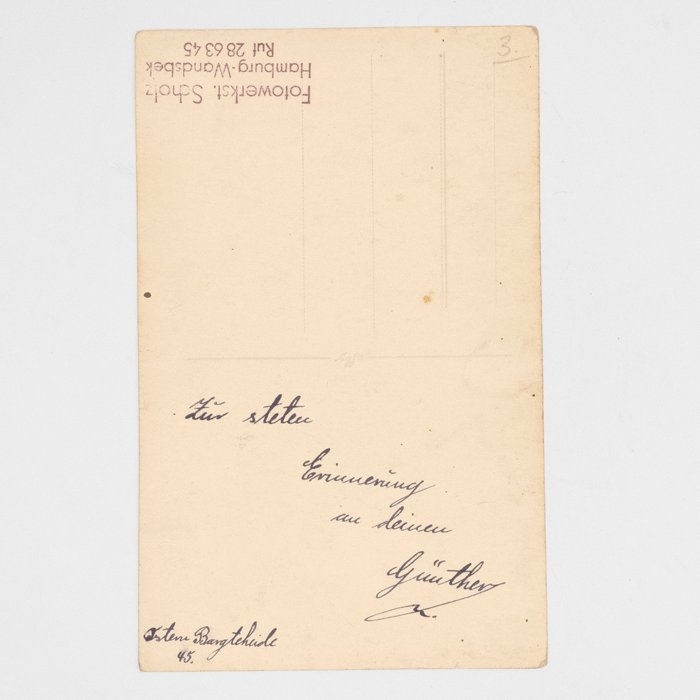 Fotowerkst. Scholz
Hamburg-Wandsbek
Ruf 28 63 45
3.
Zur steten
Erinnerung
an deinen
Günther
Ostern Bargteheide
45.